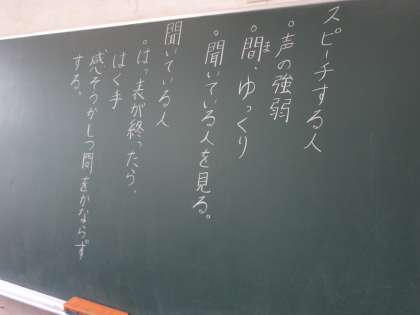 スピーチする人
。声の強弱
。間、ゆっくり
ま
。聞いている人を見る。
聞いている人
。はっ表が終ったら、
はく手
感そうかしつ問をかならず
する。